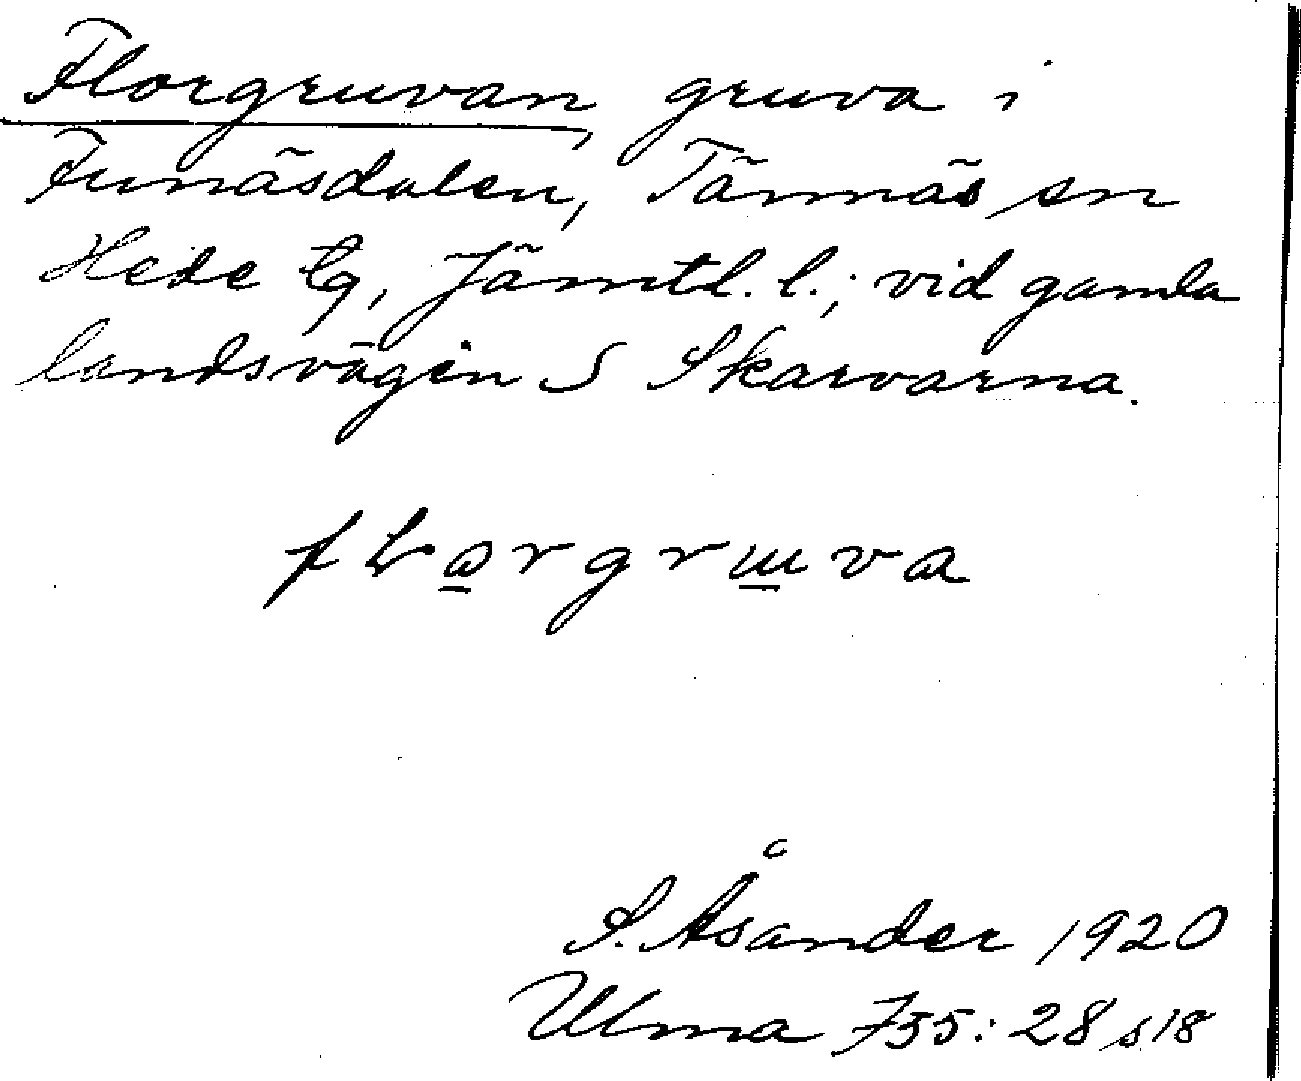 Florgruvan, gruva i
Funäsdalen, Tännäs sn
Hede tg, Jämtl. l.; vid gamla
landsvägen S Skarvarna.
fLorgruva
S. Åsander 1920
Ulma 755: 28 s 18